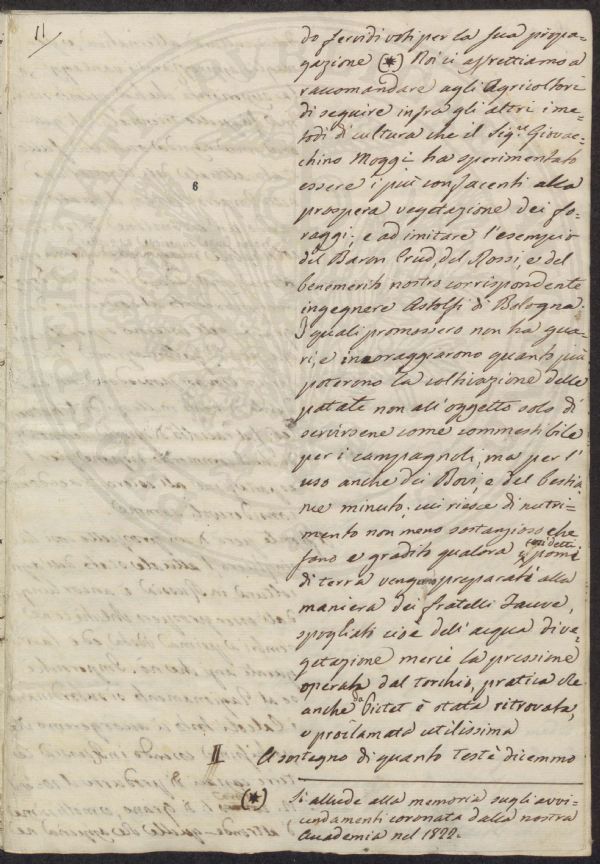 11
do fervidi voti per la sua propa-
gazione (*) Noi ci affrettiamo a
raccomandare agli Agricoltori
di seguire infra gli altri i me-
todi di cultura che il Sig.re Giovac-
chino Moggi ha sperimentato
essere i più confacenti alla
prospera vegetazione dei fo-
raggi, e ad imitare l'esempio
del Baron Crud, del Rossi, e del
benemerito nostro corrispondente
ingegnere Astolfi di Bologna.
I quali promossero non ha gua-
ri, e incoraggiarono quanto più
poterono la coltivazione delle
patate non all'oggetto solo di
servirsene come commestibile
per i campagnoli, ma per l'
uso anche dei Bovi, e del bestia-
me minuto, cui riesce di nutri-
mento non meno sostanzioso che
sano e gradito qualora i così detti pomi
di terra vengono preparati alla
maniera dei fratelli Jauve,
spogliati cioè dell'acqua di ve-
getazione mercè la pressione
operata dal torchio, pratica che
anche da Pictet è stata ritrovata,
e proclamata utilissima
II A sostegno di quanto testè dicemmo
(*) Si allude alla memoria sugli avvi-
cendamenti coronata dalla nostra
Accademia nel 1822.